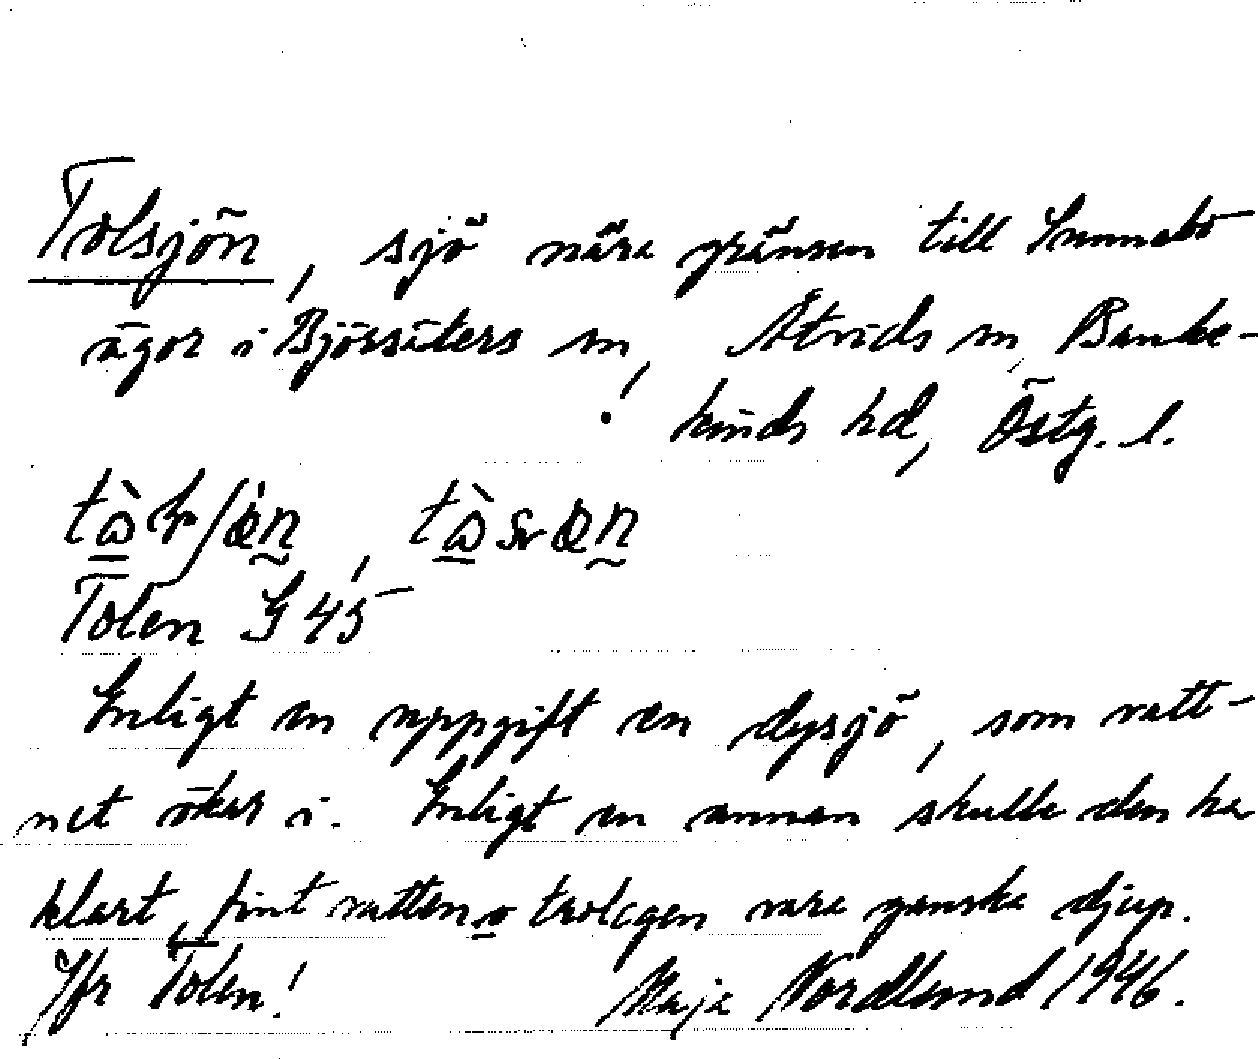 Tolsjön, sjö nära gränsen till Sunnebo
ägor i Björsäters sn, Åtvids sn, Banke-
kinds hd, Östg. l.
Tolen G 45
Enligt en uppgift en dysjö, som vatt-
net ökar i. Enligt en annan skulle den ha
klart, fint vatten o troligen vara ganska djup.
Jfr Tolen! Maja Nordlund 1946.